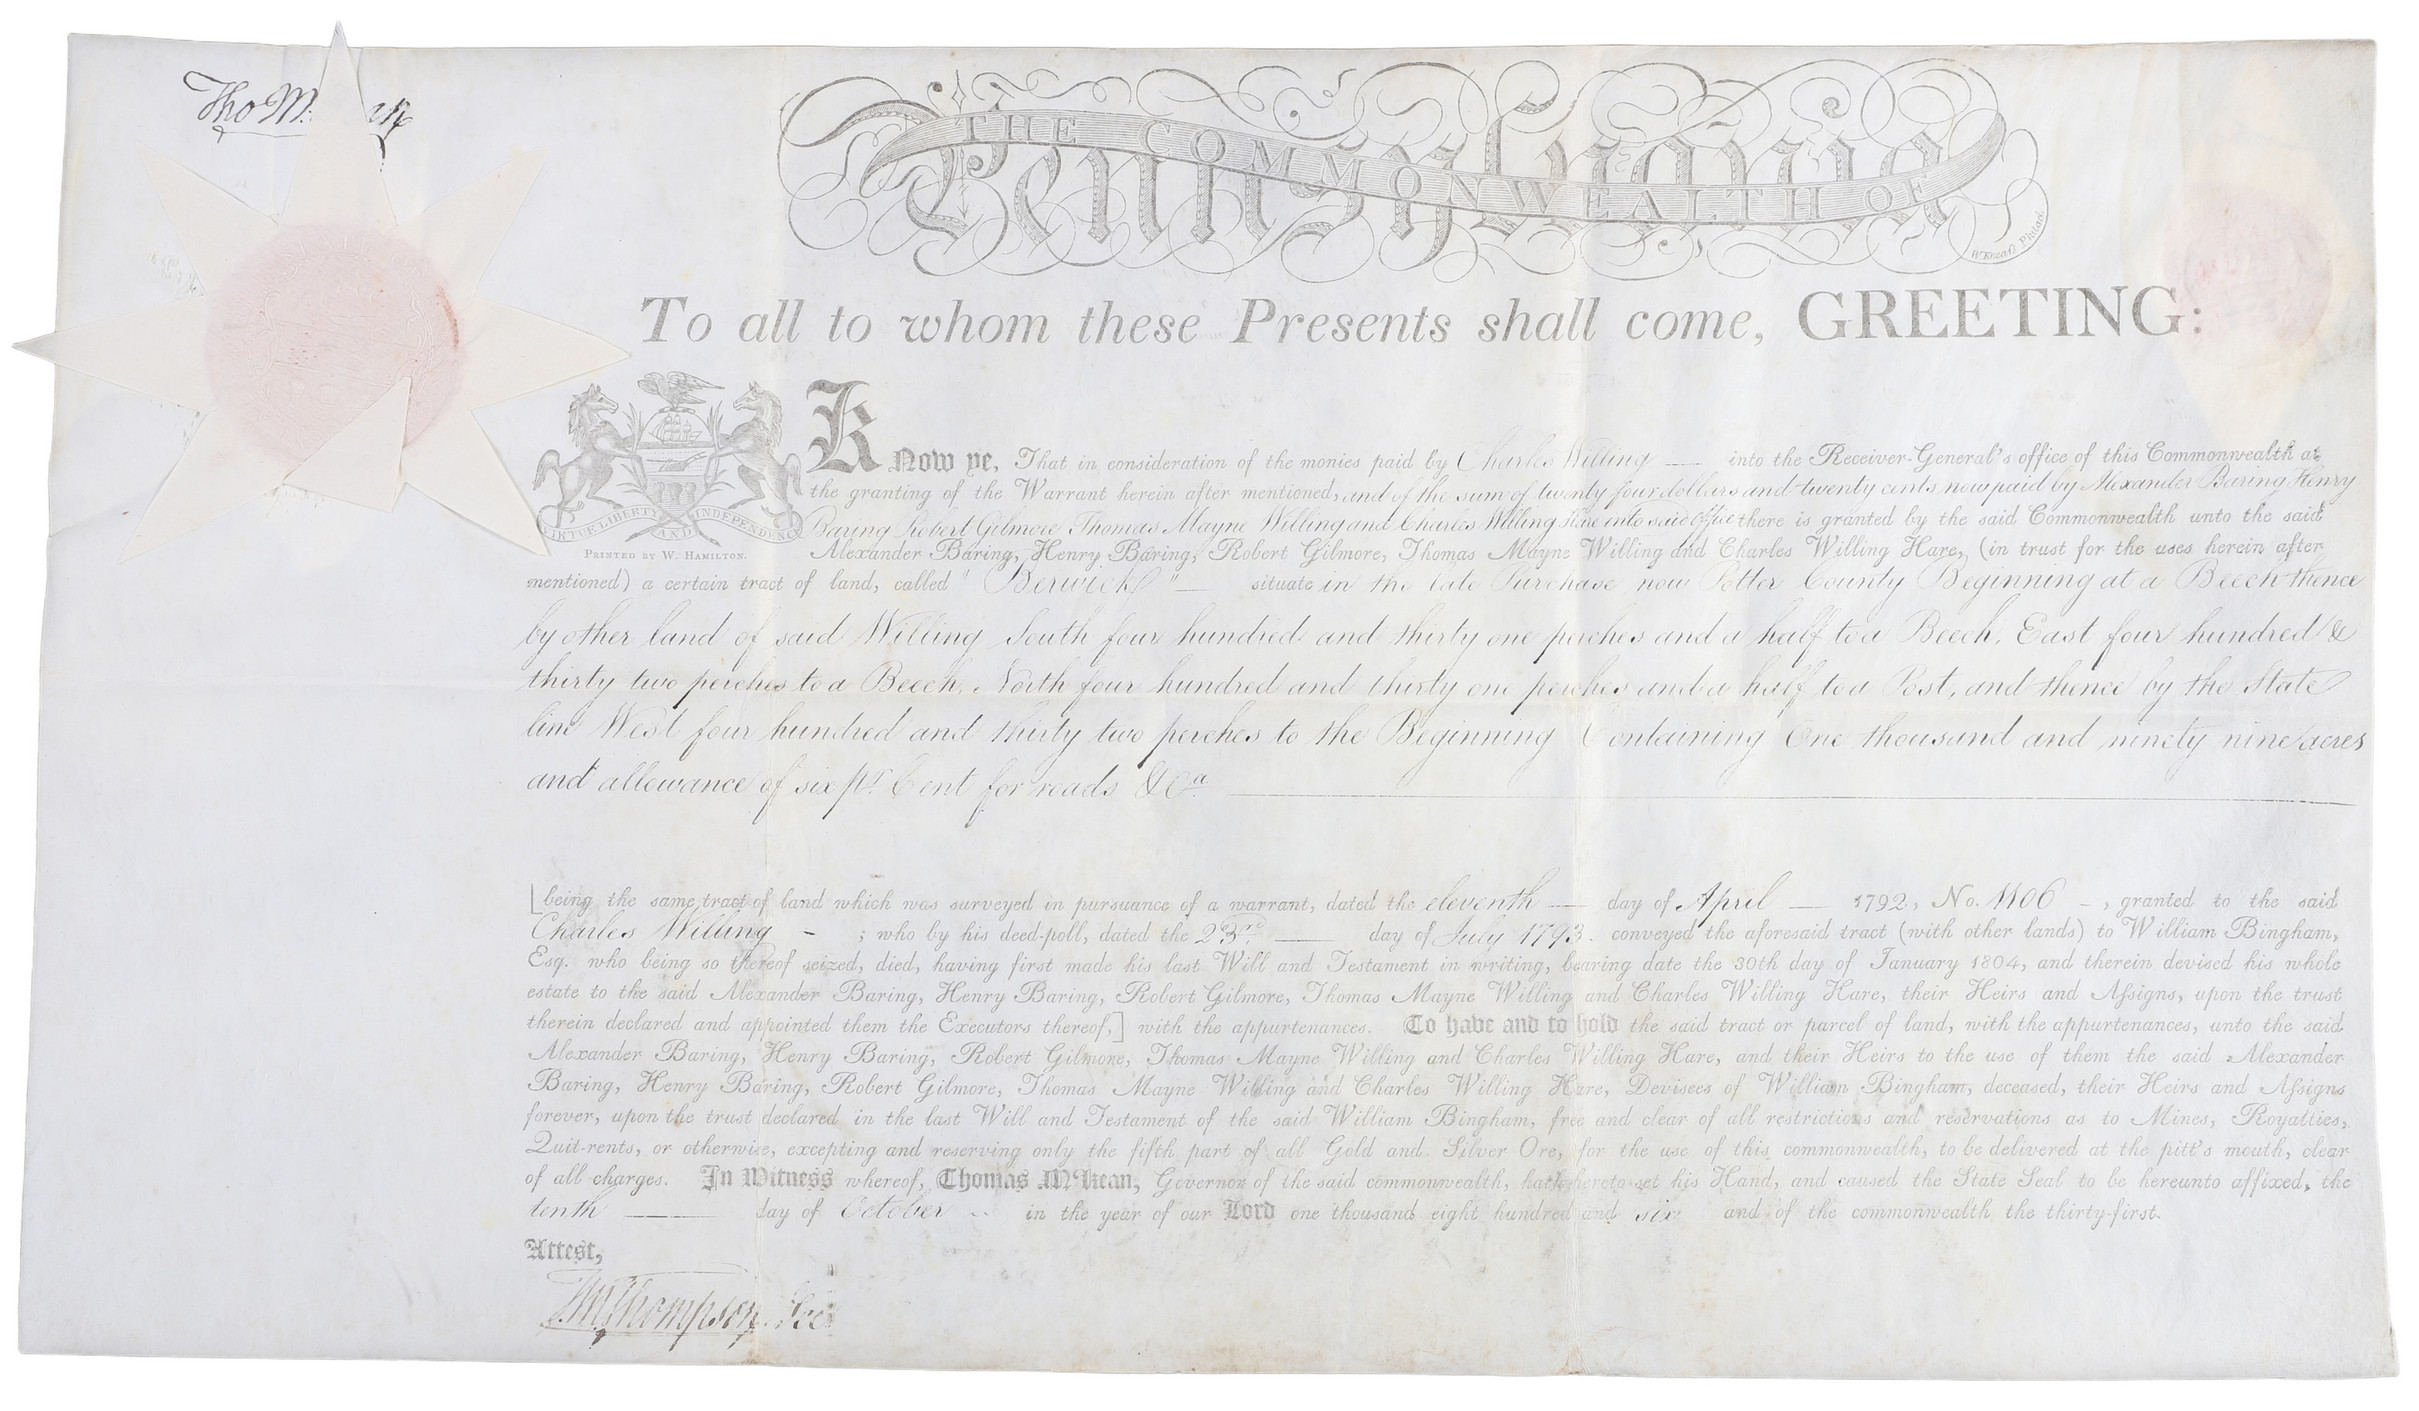 Tho M
THE COMMONWEALTH OF
Pennsylvania
W Kneass Philad.
To all to whom these Presents shall come, GREETING:
VIRTUE LIBERTY AND INDEPENDENCE
PRINTED BY W. HAMILTON.
KNow ye, That in consideration of the monies paid by Charles Willing — into the Receiver-General's office of this Commonwealth at
the granting of the Warrant herein after mentioned, and of the sum of twenty four dollars and twenty cents now paid by Alexander Baring Henry
Baring Robert Gilmore Thomas Mayne Willing and Charles Willing Hare into said Office there is granted by the said Commonwealth unto the said
Alexander Baring, Henry Baring, Robert Gilmore, Thomas Mayne Willing and Charles Willing Hare, (in trust for the uses herein after
mentioned) a certain tract of land, called "Berwick" — situate in the late Purchase now Potter County Beginning at a Beech thence
by other land of said Willing South four hundred and thirty one perches and a half to a Beech, East four hundred &
thirty two perches to a Beech, North four hundred and thirty one perches and a half to a Post, and thence by the State
line West four hundred and thirty two perches to the Beginning Containing One thousand and ninety nine acres
and allowance of six pr. Cent for roads &ca.
[being the same tract of land which was surveyed in pursuance of a warrant, dated the eleventh — day of April — 1792, No. 1106 -, granted to the said
Charles Willing - ; who by his deed-poll, dated the 23rd — day of July 1793. conveyed the aforesaid tract (with other lands) to William Bingham,
Esq. who being so thereof seized, died, having first made his last Will and Testament in writing, bearing date the 30th day of January 1804, and therein devised his whole
estate to the said Alexander Baring, Henry Baring, Robert Gilmore, Thomas Mayne Willing and Charles Willing Hare, their Heirs and Assigns, upon the trust
therein declared and appointed them the Executors thereof,] with the appurtenances. To have and to hold the said tract or parcel of land, with the appurtenances, unto the said
Alexander Baring, Henry Baring, Robert Gilmore, Thomas Mayne Willing and Charles Willing Hare, and their Heirs to the use of them the said Alexander
Baring, Henry Baring, Robert Gilmore, Thomas Mayne Willing and Charles Willing Hare, Devisees of William Bingham, deceased, their Heirs and Assigns
forever, upon the trust declared in the last Will and Testament of the said William Bingham, free and clear of all restrictions and reservations as to Mines, Royalties,
Quit-rents, or otherwise, excepting and reserving only the fifth part of all Gold and Silver Ore, for the use of this commonwealth, to be delivered at the pitt's mouth, clear
of all charges. In Witness whereof, Thomas M'Kean, Governor of the said commonwealth, hath hereto set his Hand, and caused the State Seal to be hereunto affixed, the
tenth — day of October — in the year of our Lord one thousand eight hundred and six and of the commonwealth the thirty-first.
Attest,
TM Thompson Sec